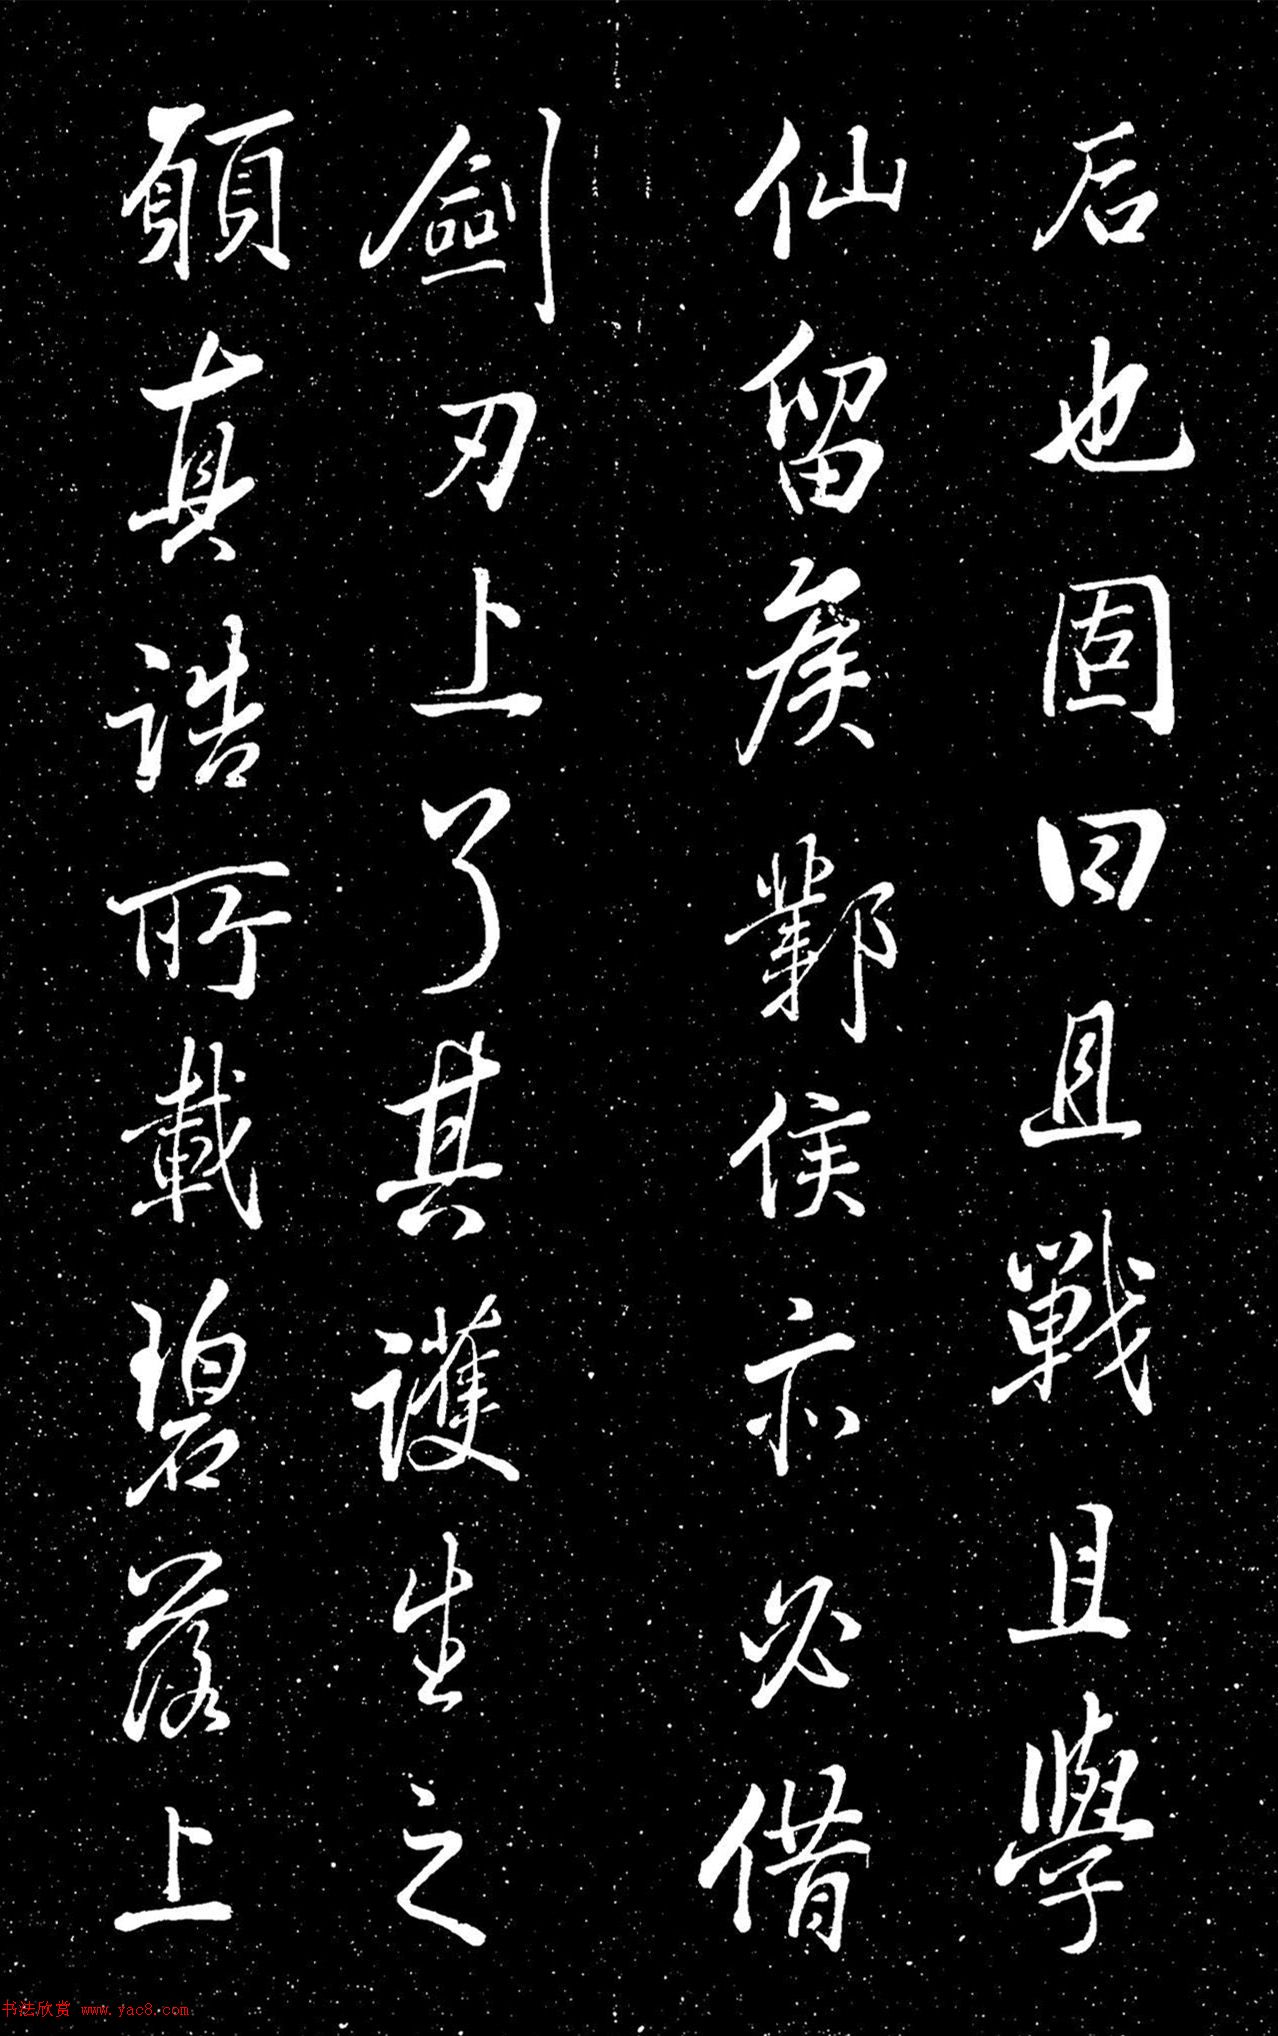 后也固曰且戰且學
仙留矦鄴侯亦必借
劍刃上了其護生之
願真誥所載碧落上
书法欣赏 www.yac8.com